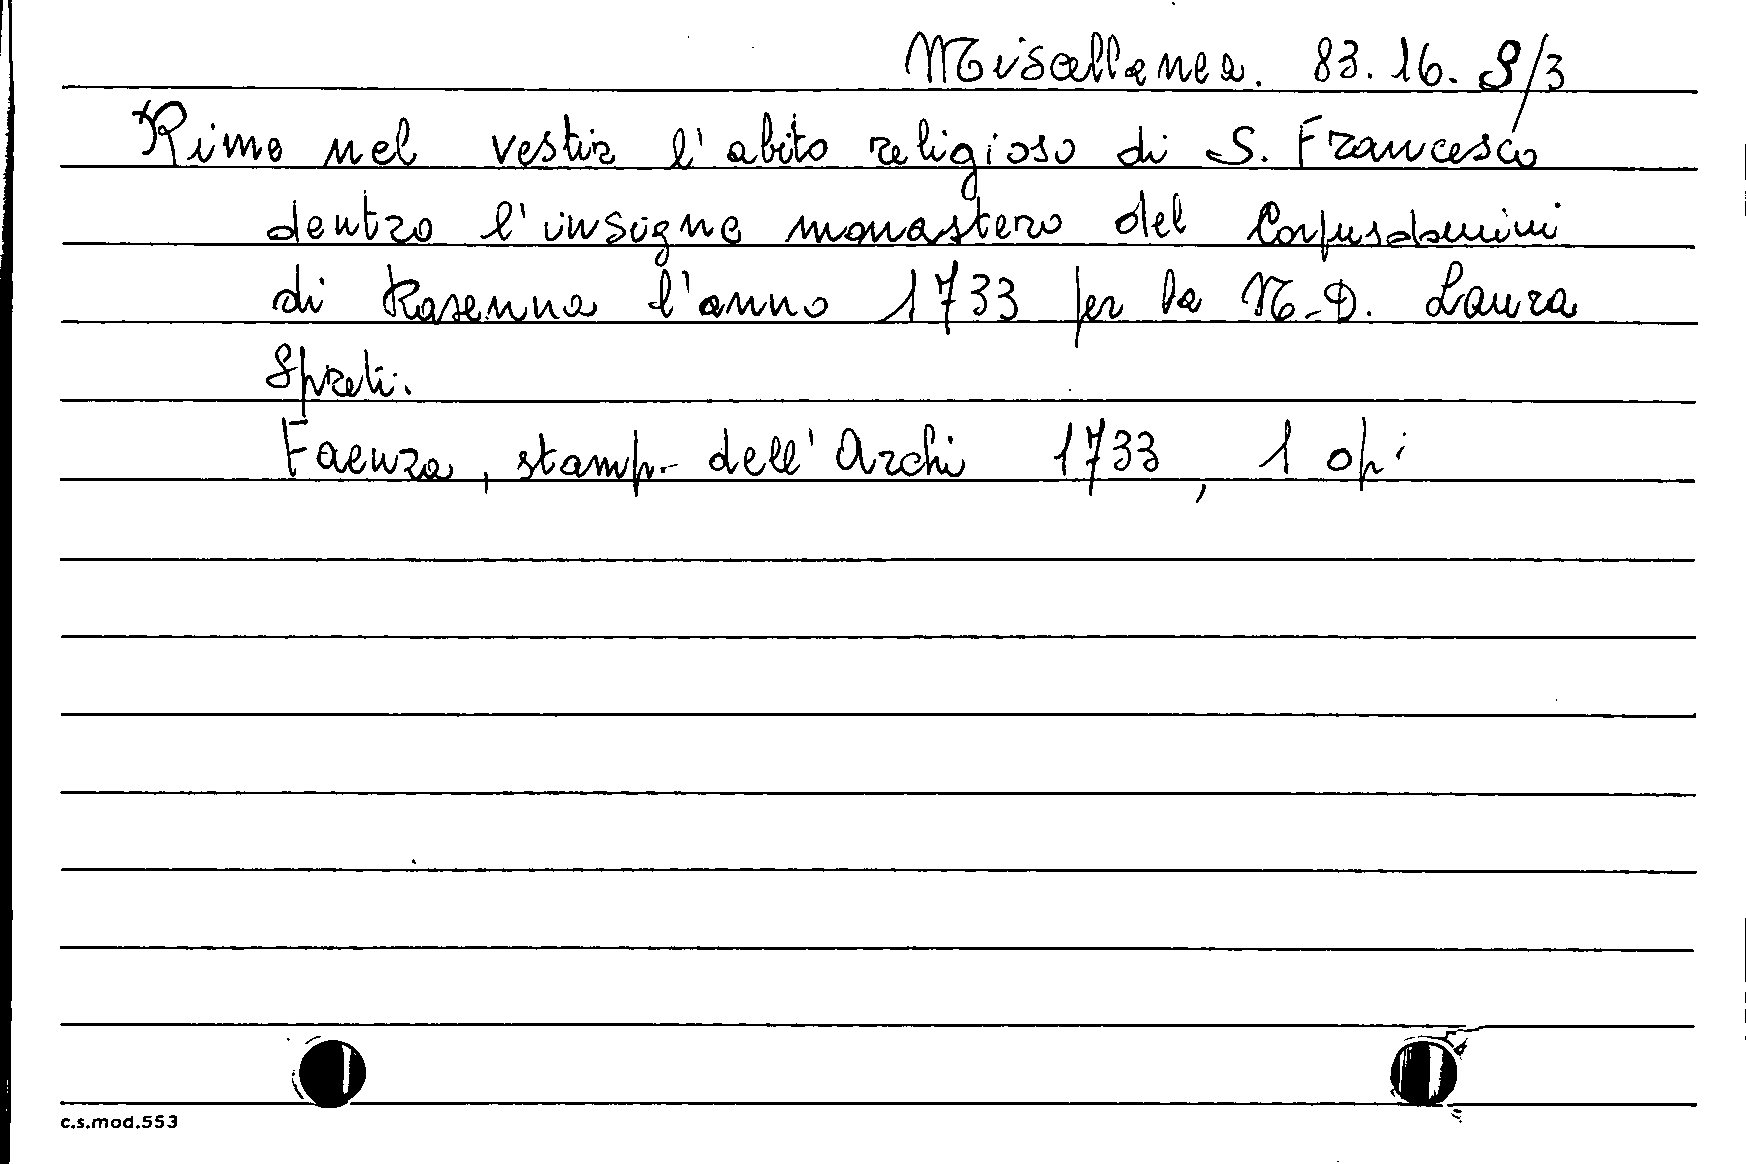 Miscellanea. 83.16.S/3
Rime nel vestir l'abito religioso di S. Francesco
dentro l'insigne monastero del Corpusdomini
di Ravenna l'anno 1733 per la N.D. Laura
Spreti.
Faenza, stamp. dell'Archi 1733, 1 op.
c.s.mod.553